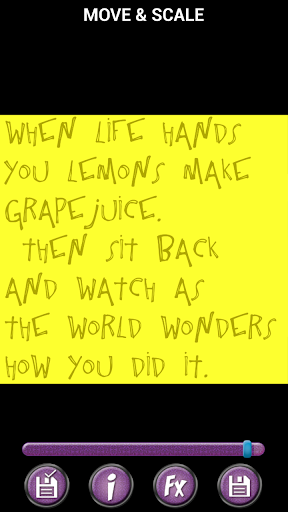 MOVE & SCALE
WHEN LIFE HANDS
YOU LEMONS MAKE
GRAPEJUICE.
THEN SIT BACK
AND WATCH AS
THE WORLD WONDERS
HOW YOU DID IT.
i Fx